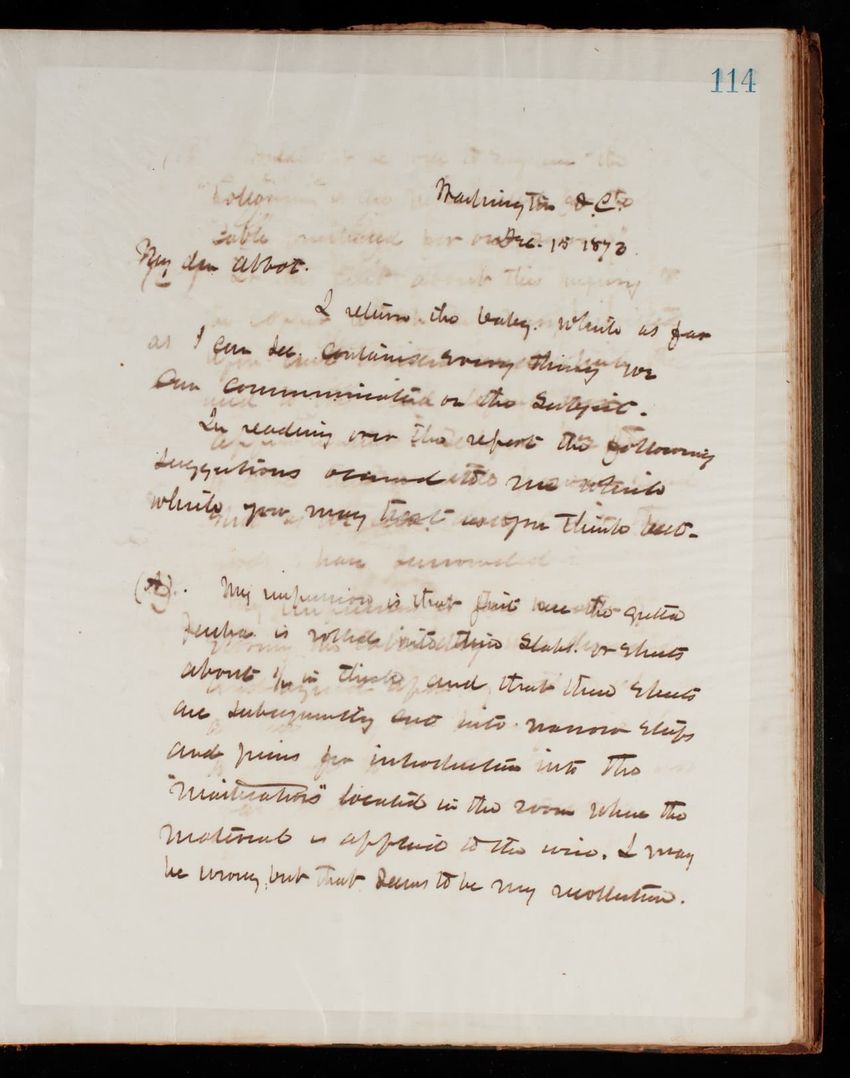 114
Washington D.C.
Dec. 15 1873.
My dear Abbot.
I return the . which as far
as I can see. contains every thing you
can communicated on the Subject.
In reading over the report the following
Suggestions occurred to me which
which you may treat as you think best.
(A). My impression is that first the gutta
percha is rolled into thin Slabs. or Sheets
about in thick and that these Sheets
are subsequently cut into narrow strips
and for introduction into the
"Masticators" located in the room where the
material is applied to the wire. I may
be wrong, but that seems to be my recollection.